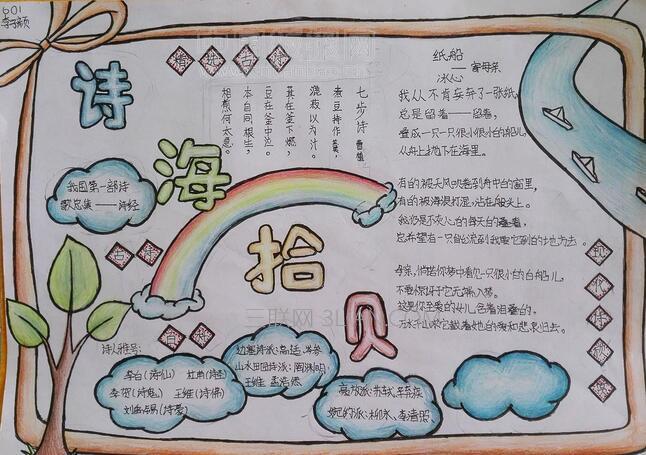 601
诗
海
拾
贝
精选古诗
七步诗 曹植
煮豆持作羹，
漉豉以为汁。
萁在釜下燃，
豆在釜中泣。
本自同根生，
相煎何太急。
纸船
——寄母亲
冰心
我从不肯妄弃了一张纸，
总是留着——留着，
叠成一只一只很小很小的船儿，
从舟上抛下在海里。
有的被天风吹卷到舟中的窗里，
有的被海浪打湿，沾在船头上。
我仍是不灰心的每天的叠着，
总希望有一只能流到我要它到的地方去。
母亲，倘若你梦中看见一只很小的白船儿，
不要惊讶它无端入梦。
这是你至爱的女儿含着泪叠的，
万水千山求它载着她的爱和悲哀归去。
现代诗
我国第一部诗
歌总集——诗经
诗人雅号：
李白(诗仙) 杜甫(诗圣)
李贺(诗鬼) 王维(诗佛)
刘禹锡(诗豪)
边塞诗派：高适、岑参
山水田园诗派：陶渊明、
王维、孟浩然
豪放派：苏轼、辛弃疾
婉约派：柳永、李清照、
三联网 3LIAN.COM